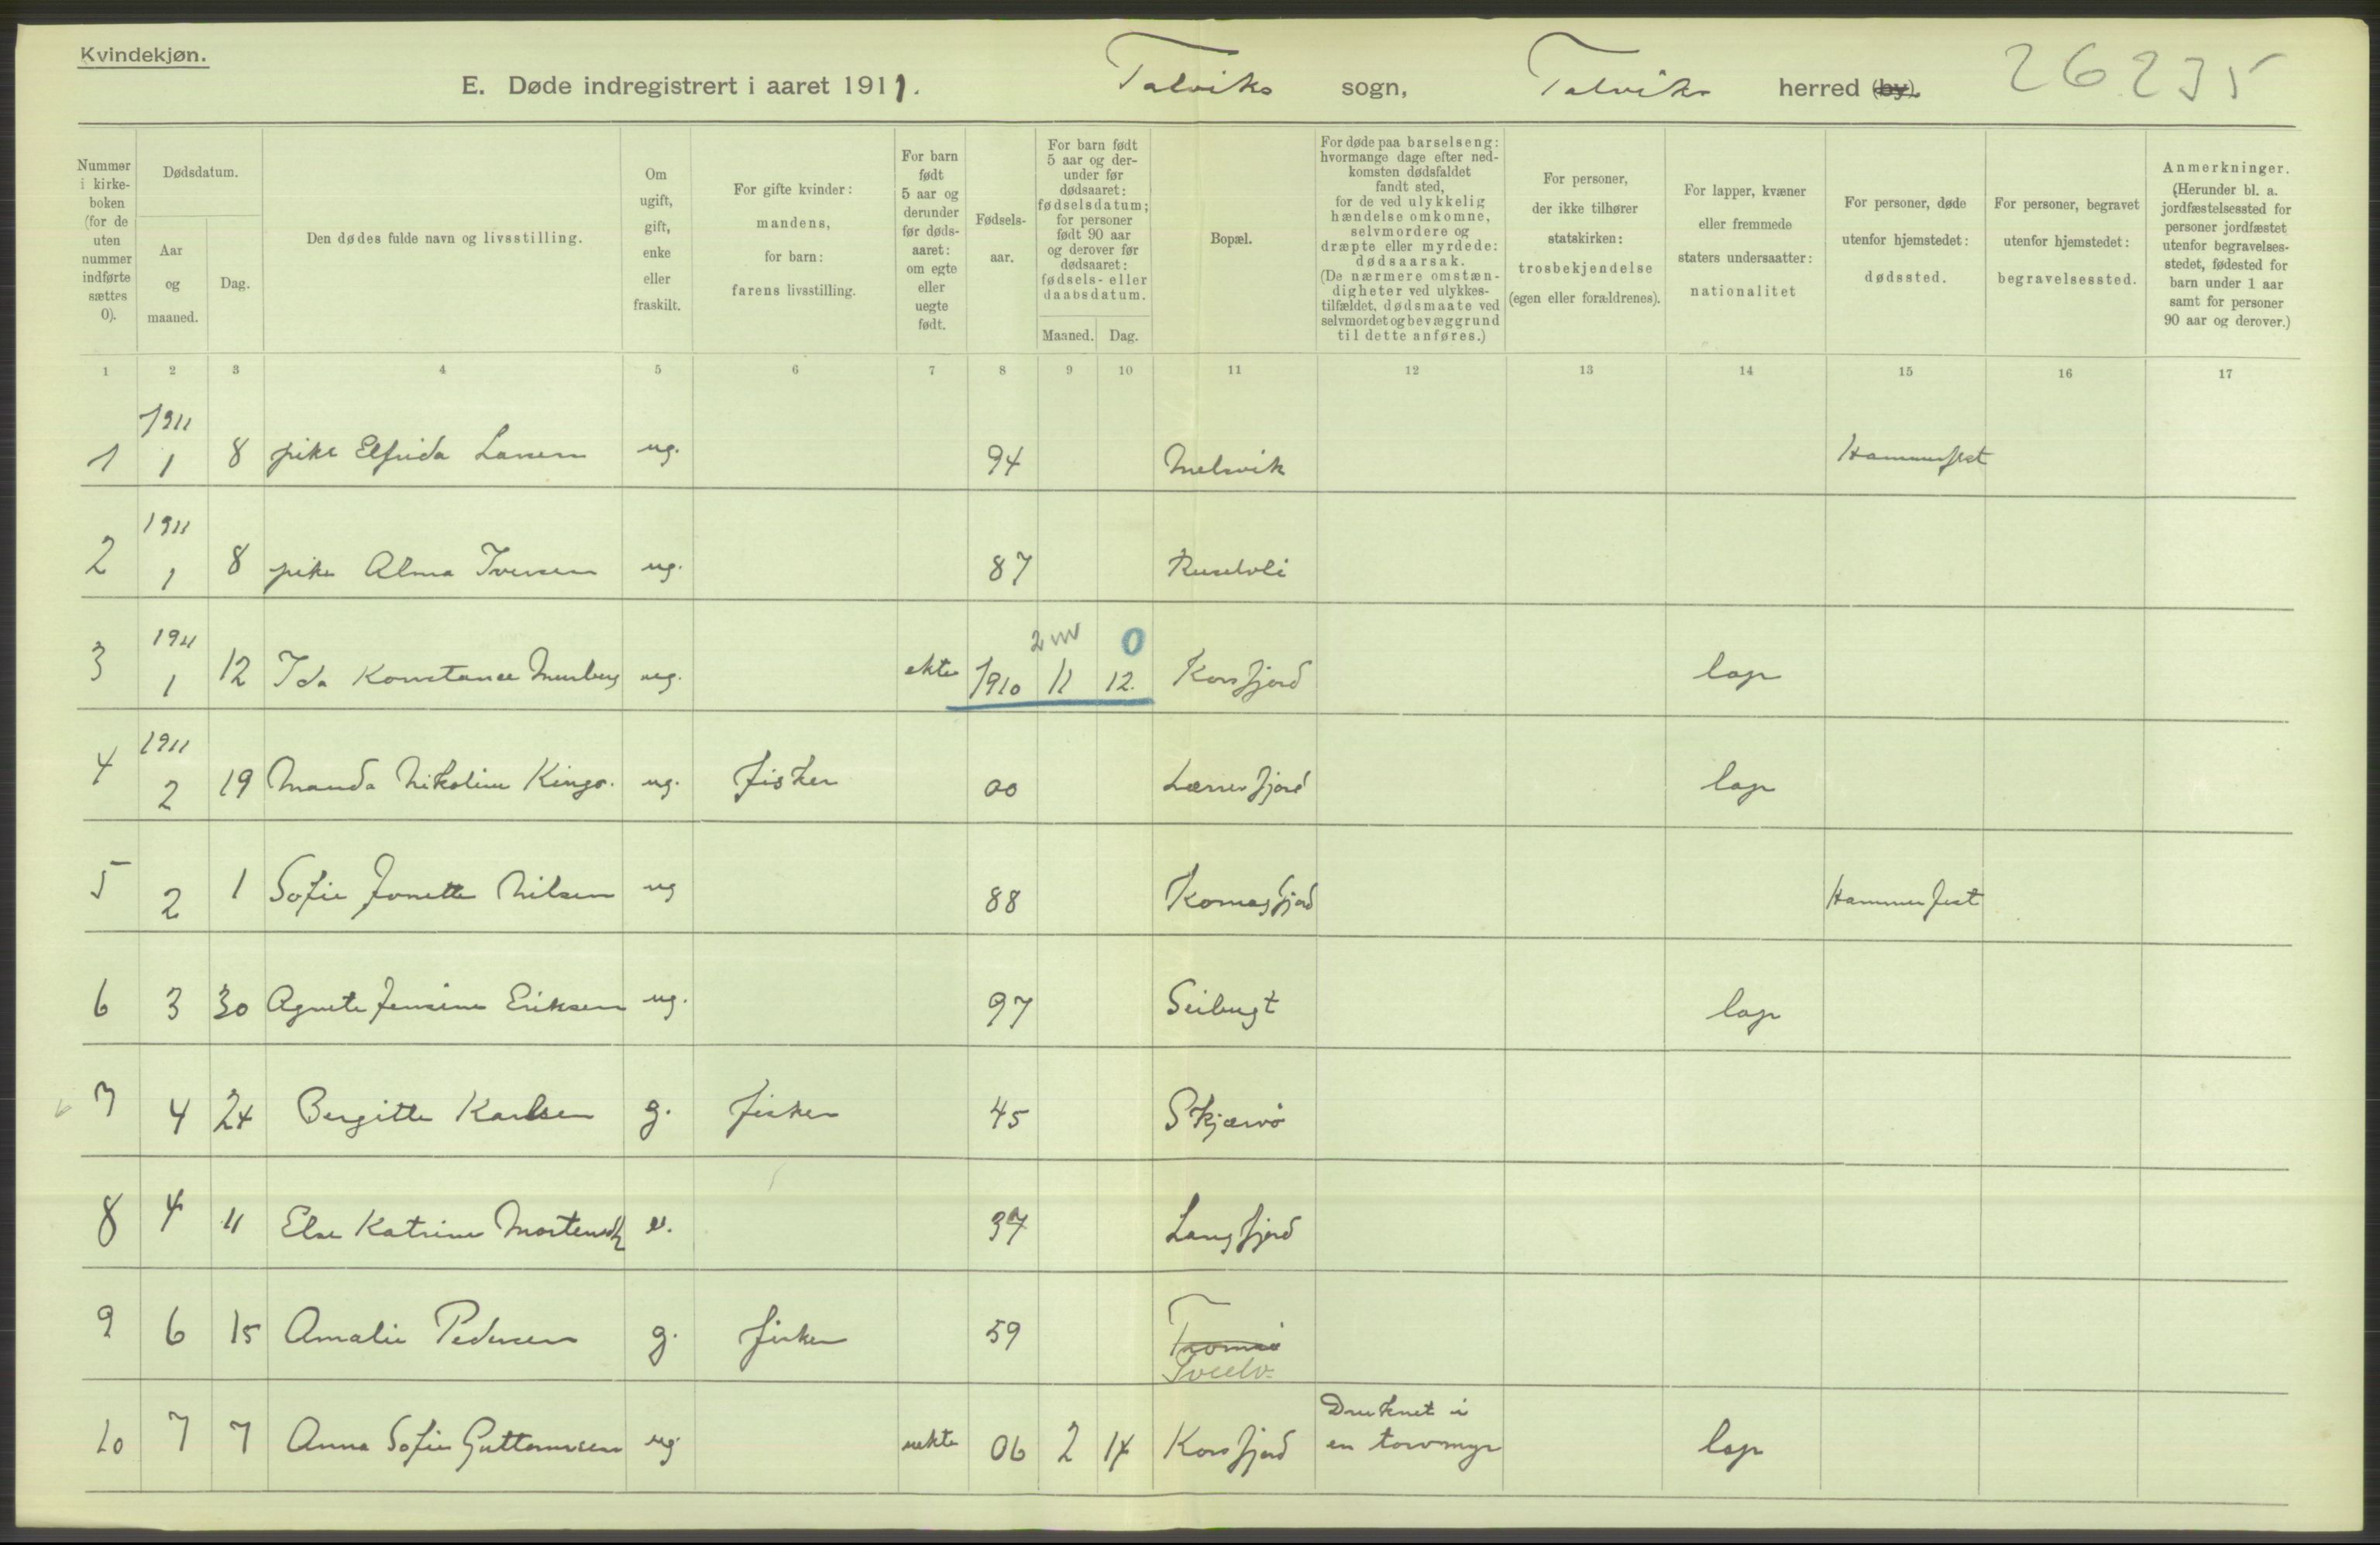 Kvindekjøn.
E. Døde indregistrert i aaret 1911. Talviks sogn, Talviks herred (by). 26235
Nummer i kirke- boken (for de uten nummer indførte sættes 0).
Dødsdatum.
Aar og maaned.
Dag.
Den dødes fulde navn og livsstilling.
Om ugift, gift, enke eller fraskilt.
For gifte kvinder: mandens, for barn: farens livsstilling.
For barn født 5 aar og derunder før døds- aaret: om egte eller uegte født.
Fødsels- aar.
For barn født 5 aar og der- under før dødsaaret: fødselsdatum; for personer født 90 aar og derover før dødsaaret: fødsels- eller daabsdatum.
Maaned. Dag.
Bopæl.
For døde paa barselseng: hvormange dage efter ned- komsten dødsfaldet fandt sted, for de ved ulykkelig hændelse omkomne, selvmordere og dræpte eller myrdede: dødsaarsak. (De nærmere omstæn- digheter ved ulykkes- tilfældet, dødsmaate ved selvmordet og bevæggrund til dette anføres.)
For personer, der ikke tilhører statskirken: trosbekjendelse (egen eller forældrenes).
For lapper, kvæner eller fremmede staters undersaatter: nationalitet
For personer, døde utenfor hjemstedet: dødssted.
For personer, begravet utenfor hjemstedet: begravelsessted.
Anmerkninger. (Herunder bl. a. jordfæstelsessted for personer jordfæstet utenfor begravelses- stedet, fødested for barn under 1 aar samt for personer 90 aar og derover.)
1 2 3 4 5 6 7 8 9 10 11 12 13 14 15 16 17
1911
1 1 8 pike Elfrida Larsen ug. 94 Melsvik Hammerfest
1911
2 1 8 pike Alma Iversen ug. 87
1911 2 m 0
3 1 12 Ida Konstance Murberg ug. ekte 1910 11 12. Korsfjord lap
1911
4 2 19 Manda Nikoline Kingo. ug. fisker 00 Lærresfjord lap
5 2 1 Sofie Jonette Nilsen ug 88 Komagfjord Hammerfest
6 3 30 Agnete Jensine Eriksen ug. 97 Seibugt lap
7 4 24 Bergitte Karlsen g. fisker 45 Skjærvø
8 4 11 Else Katrine Mortensdt e. 37 Langfjord
9 6 15 Amalie Pedersen g. fisker 59 Tromsø
Druknet i
10 7 7 Anna Sofie Guttormsen ug uekte 06 2 14 Korsfjord en torvmyr lap